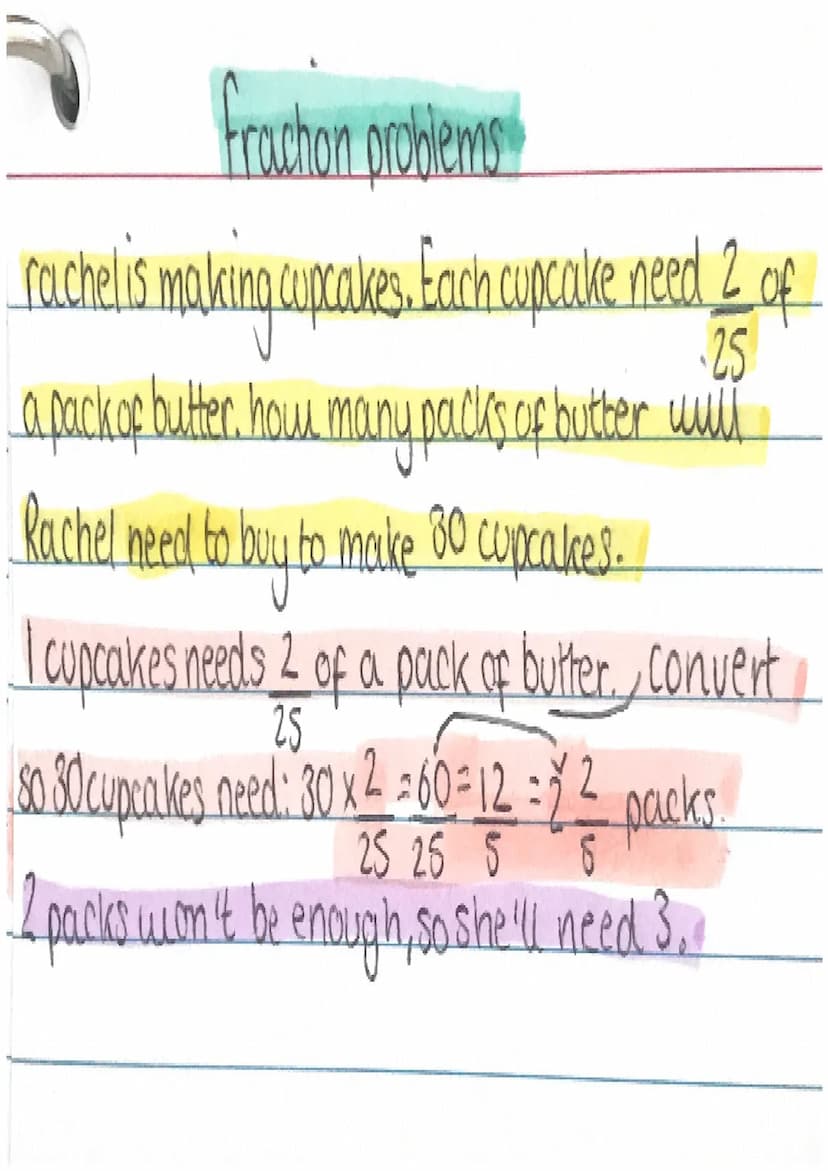 fraction problems
rachel is making cupcakes. Each cupcake need 2/25 of
a pack of butter. how many packs of butter will
Rachel need to buy to make 30 cupcakes.
1 cupcakes needs 2/25 of a pack of butter. convert
so 30 cupcakes need: 30 x 2/25 = 60/25 = 12/5 = 2 2/5 packs.
2 packs won't be enough, so she'll need 3.